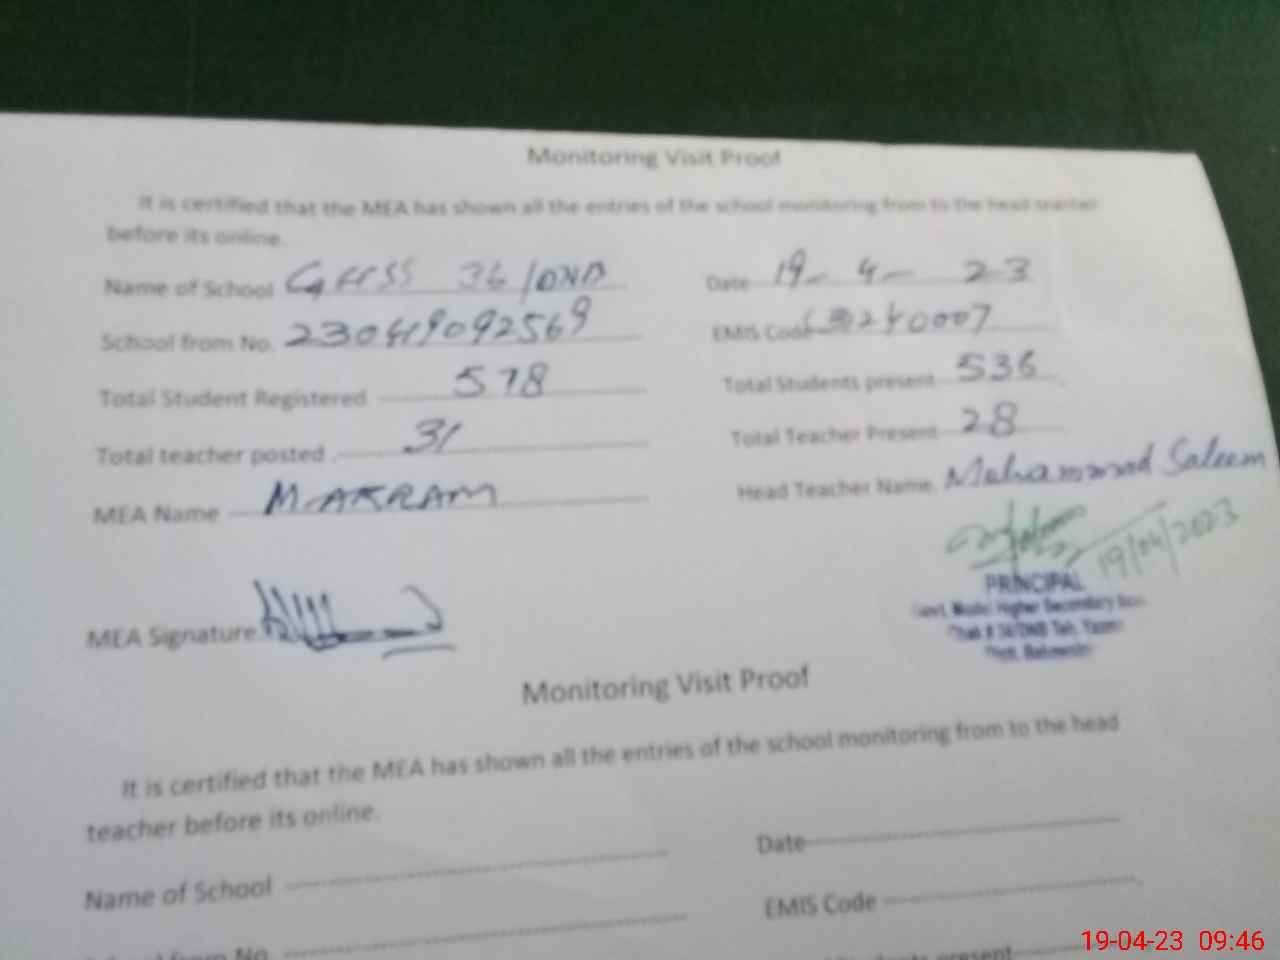 Monitoring Visit Proof
It is certified that the MEA has shown all the entries of the school monitoring from to the head teacher
before its online.
Name of School GHSS 36/DNB Date 19-4-23
School from No. 230419092569 EMIS Code 30240007
Total Student Registered 578 Total Students present 536
Total teacher posted 31 Total Teacher Present 28
MEA Name M. AKRAM Head Teacher Name Muhammad Saleem
19/04/2023
PRINCIPAL
Govt. Model Higher Secondary
Chak # 36/DNB Teh. Yazman
MEA Signature
Monitoring Visit Proof
It is certified that the MEA has shown all the entries of the school monitoring from to the head
teacher before its online.
Name of School Date
School from No. EMIS Code
Students present
19-04-23 09:46